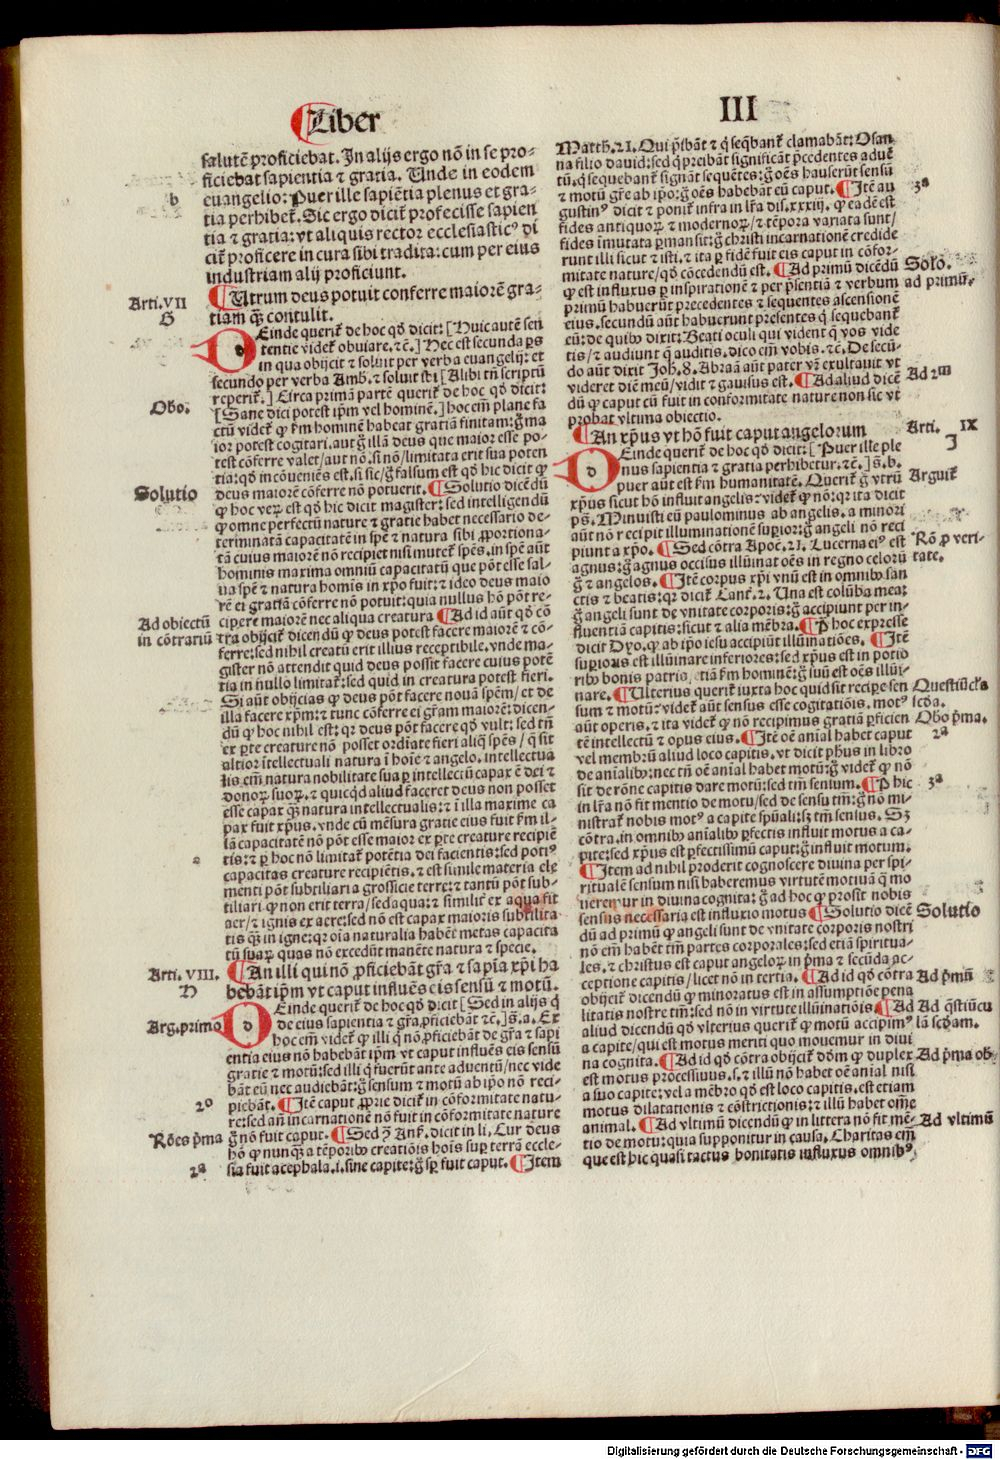 Liber
III
salutē proficiebat. In alijs ergo nō in se pro-
ficiebat sapientia ⁊ gratia. Unde in eodem
b
euangelio: Puer ille sapiētia plenus et gra-
tia perhibet̄. Sic ergo dicit̄ profecisse sapien
tia ⁊ gratia: vt aliquis rector ecclesiasticꝰ di
cit̄ proficere in cura sibi tradita: cum per eius
industriam alij proficiunt.
Arti. VII
G
Utrum deus potuit conferre maiorē gra-
tiam q̄ȝ contulit.
Deinde querit̄ de hoc qd̄ dicit: [Huic autē sen
tentie videt̄ obuiare. ⁊c̄.] Hec est secunda ꝑs
in qua obijcit ⁊ soluit per verba euangelij: et
secundo per verba Amb. ⁊ soluit ibi [Alibi tn̄ scriptū
reperit̄.] Circa primā partē querit̄ de hoc qd̄ dicit:
Obo.
[Sane dici potest ip̄m vel hominē.] hoc em̄ plane fa
ctū videt̄ ꝙ ẜm hominē habeat gratiam finitam: g̊ ma
ior potest cogitari. aut g̊ illā deus que maior esse po-
test cōferre valet/ aut nō. si nō/ limitata erit sua poten
tia: qd̄ incōueniēs est. si sic/ g̊ falsum est qd̄ hic dicit ꝙ
Solutio
deus maiorē cōferre nō potuerit. Solutio dicēdū
ꝙ hoc verꝝ est qd̄ hic dicit magister: sed intelligendū
ꝙ omne perfectū nature ⁊ gratie habet necessario de-
terminatā capacitatē in spē ⁊ natura sibi ꝓportiona-
tā cuius maiorē nō recipiet nisi mutet̄ spēs. in spē aūt
hominis maxima omniū capacitatū que pōt esse sal-
ua spē ⁊ natura homīs in xp̄o fuit: ⁊ ideo deus maio
rē ei gratiā cōferre nō potuit: quia nullus hō pōt re-
Ad obiectū
in cōtrariū
cipere maiorē nec aliqua creatura Ad id aūt qd̄ cō
tra obijcit̄ dicendū ꝙ deus potest facere maiorē ⁊ cō-
ferre: sed nihil creatū erit illius receptibile. vnde ma-
gister nō attendit quid deus possit facere cuius potē
tia in nullo limitat̄: sed quid in creatura potest fieri.
Si aūt obijcias ꝙ deus pōt facere nouā spēm/ et de
illa facere xp̄m: ⁊ tunc cōferre ei gr̄am maiorē: dicen-
dū ꝙ hoc nihil est: qꝛ deus pōt facere qd̄ vult: sed tn̄
ex ꝑte creature nō posset ordīate fieri aliq̄ spēs/ q̄ sit
altior: intellectuali natura ī hoīe ⁊ angelo. intellectua
lis em̄ natura nobilitate sua ꝑ intellectū capax ē dei ⁊
donoꝝ suoꝝ. ⁊ quicq̄d aliud faceret deus non posset
esse capax q̄ȝ natura intellectualis: ⁊ ī illa maxime ca
pax fuit xp̄us. vnde cū mēsura gratie eius fuit ẜm il-
lā capacitatē nō pōt esse maior ex ꝑte creature recipiē
tis: ⁊ ꝑ hoc nō limitat̄ potētia dei facientis: sed potiꝰ
capacitas creature recipiētis. ⁊ est simile materia ele
menti pōt subtiliari a grossicie terre: ⁊ tantū pōt sub-
tiliari ꝙ non erit terra/ sed aqua: ⁊ similit̄ ex aqua fit
aer/ ⁊ ignis ex aere: sed nō est capax maioris subtilita
tis q̄ȝ in igne: qꝛ oīa naturalia habēt metas capacita
tū suaꝝ quas nō excedūt manēte natura ⁊ specie.
Arti. VIII.
H
An illi qui nō ꝓficiebāt gr̄a ⁊ sapīa xp̄i ha
bebāt ip̄m vt caput influēs eis sensū ⁊ motū.
Deinde querit̄ de hoc qd̄ dicit [Sed in alijs q̄
Arg. primo
de eius sapientia ⁊ gr̄a ꝓficiebāt ⁊c̄.] s̄. a. Ex
hoc em̄ videt̄ ꝙ illi q̄ nō ꝓficiebāt de gr̄a ⁊ sapi
entia eius nō habebāt ip̄m vt caput influēs eis sensū
gratie ⁊ motū: sed illi q̄ fuerūt ante aduentū/ nec vide
bāt eū nec audiebāt: g̊ sensum ⁊ motū ab ip̄o nō reci-
2º
piebāt. Itē caput ꝓprie dicit̄ in cōformitate natu-
re: sed an̄ incarnationē nō fuit in cōformitate nature
Rōes pͥma
g̊ nō fuit caput. Sed ꝯ Anß. dicit in li. Cur deus
hō ꝙ nunq̄ȝ a tēporib⁹ creationis hoīs suꝑ terrā eccle-
2ª
sia fuit acephala. i. sine capite: g̊ sꝑ fuit caput. Item
Matth. 21. Qui p̄ibāt ⁊ q̄ seq̄bant̄ clamabāt: Osan
na filio dauid: sed q̄ preibāt significāt p̄cedentes aduē
tū. q̄ sequebant̄ signāt sequētes: g̊ oēs hauserūt sensū
3ª
⁊ motū gr̄e ab ip̄o: g̊ oēs habebāt eū caput. Itē au
gustinꝰ dicit ⁊ ponit̄ infra in lr̄a dis. xxxiij. ꝙ eadē est
fides antiquoꝝ ⁊ modernoꝝ/ ⁊ tēpora variata sunt/
fides īmutata ꝑmansit: g̊ christi incarnationē credide
runt illi sicut ⁊ isti. ⁊ ita ꝑ fidē fuit eis caput in cōfor-
Solō.
mitate nature/ qd̄ cōcedendū est. Ad primū dicēdū
ad primū.
ꝙ est influxus ꝑ inspirationē ⁊ per p̄sentiā ⁊ verbum
primū habuerūt precedentes ⁊ sequētes ascensionē
eius. secundū aūt habuerunt presentes q̄ sequebant̄
eū: de quib⁹ dixit: Beati oculi qui vident q̄ vos vide
tis/ ⁊ audiunt q̄ auditis. dico em̄ vobis. ⁊c̄. De secū-
do aūt dixit Joh. 8. Abraā aūt pater vr̄ exultauit vt
Ad 2m
videret diē meū/ vidit ⁊ gauisus est. Ad aliud dicē
dū ꝙ caput cū fuit in conformitate nature non sic vt
probat vltima obiectio.
Arti. IX
J
An xp̄us vt hō fuit caput angelorum
Deinde querit̄ de hoc qd̄ dicit: [Puer ille ple
nus sapientia ⁊ gratia perhibetur. ⁊c̄.] s̄. b.
Arguit̄
puer aūt est ẜm humanitatē. Querit̄ g̊ vtrū
xp̄us sicut hō influat angelis: videt̄ ꝙ nō: qꝛ ita dicit
ps̄. Minuisti eū paulominus ab angelis. a minori
aūt nō recipit illuminationē suꝑior: g̊ angeli nō reci
Rō ꝓ veri-
tate.
piunt a xp̄o. Sed cōtra Apoc̄. 21. Lucerna eiꝰ est
agnus: g̊ agnus occisus illuīat oēs in regno celorū
g̊ ⁊ angelos. Itē corpus xp̄i vnū est in omnib⁹ san
ctis ⁊ beatis: qꝛ dicit̄ Cant̄. 2. Una est colūba mea:
g̊ angeli sunt de vnitate corporis: g̊ accipiunt per in-
fluentiā capitis: sicut ⁊ alia mēbra. P̄ hoc expresse
dicit Dyo. ꝙ ab ip̄o iesu accipiūt illuīatiōes. Itē
suꝑioris est illuīare inferiores: sed xp̄us est in potio
rib⁹ bonis patris etiā ẜm hominē: g̊ suū est oēs illuī-
Questiūcl̄a
scd̄a.
nare. Ulterius querit̄ iuxta hoc quid sit recipe sen
sum ⁊ motū: videt̄ aūt sensus esse cogitatiōis. motꝰ
Obo pͥma.
aūt operis. ⁊ ita videt̄ ꝙ nō recipimus gratiā ꝑficien
2ª
tē intellectū ⁊ opus eius. Itē oē aīal habet caput
vel membrū aliud loco capitis. vt dicit ph̄us in libro
de aīalib⁹: nec tn̄ oē aīal habet motū: g̊ videt̄ ꝙ nō
3ª
sit de rōne capitis dare motū: sed tm̄ sensum. P̄ hic
in lr̄a nō fit mentio de motu/ sed de sensu tm̄: g̊ nō mi-
nistrat̄ nobis motꝰ a capite spūali: sȝ tm̄ sensus. Sȝ
cōtra. in omnib⁹ aīalib⁹ ꝑfectis influit motus a ca-
pite: sed xp̄us est ꝑfectissimū caput: g̊ influit motum.
Item ad nihil proderit cognoscere diuina per spi-
ritualē sensum nisi haberemus virtutē motiuā q̄ mo
ueremur in diuina cognita: g̊ ad hoc ꝙ prosit nobis
Solutio
sensus necessaria est influxio motus Solutio dicē
dū ad primū ꝙ angeli sunt de vnitate corporis nostri
nō em̄ habēt tm̄ partes corporales: sed etiā spiritua-
les. ⁊ christus est caput angeloꝝ in pͥma ⁊ secūda ac-
Ad pͥmū
ceptione capitis/ licet nō in tertia. Ad id qd̄ cōtra
obijcit̄ dicendū ꝙ minoratus est in assumptiōe pena
Ad q̄stiūcu
lā scd̄am.
litatis nostre tm̄: sed nō in virtute illuīatiōis. Ad
aliud dicendū qd̄ vlterius querit̄ ꝙ motū accipimꝰ
a capite/ qui est motus meriti quo mouemur in diui
Ad pͥma ob
na cognita. Ad id qd̄ cōtra obijcit̄ dōm ꝙ duplex
est motus processiuus. s. ⁊ illū nō habet oē aīal nisi
a suo capite: vel a mēbro qd̄ est loco capitis. est etiam
motus dilatationis ⁊ cōstrictionis: ⁊ illū habet om̄e
Ad vltimū
animal. Ad vltimū dicendū ꝙ in littera nō fit mē-
tio de motu: quia supponitur in causa. Charitas em̄
que est hic quasi tactus bonitatis influxus omnibꝰ
Digitalisierung gefördert durch die Deutsche Forschungsgemeinschaft - DFG